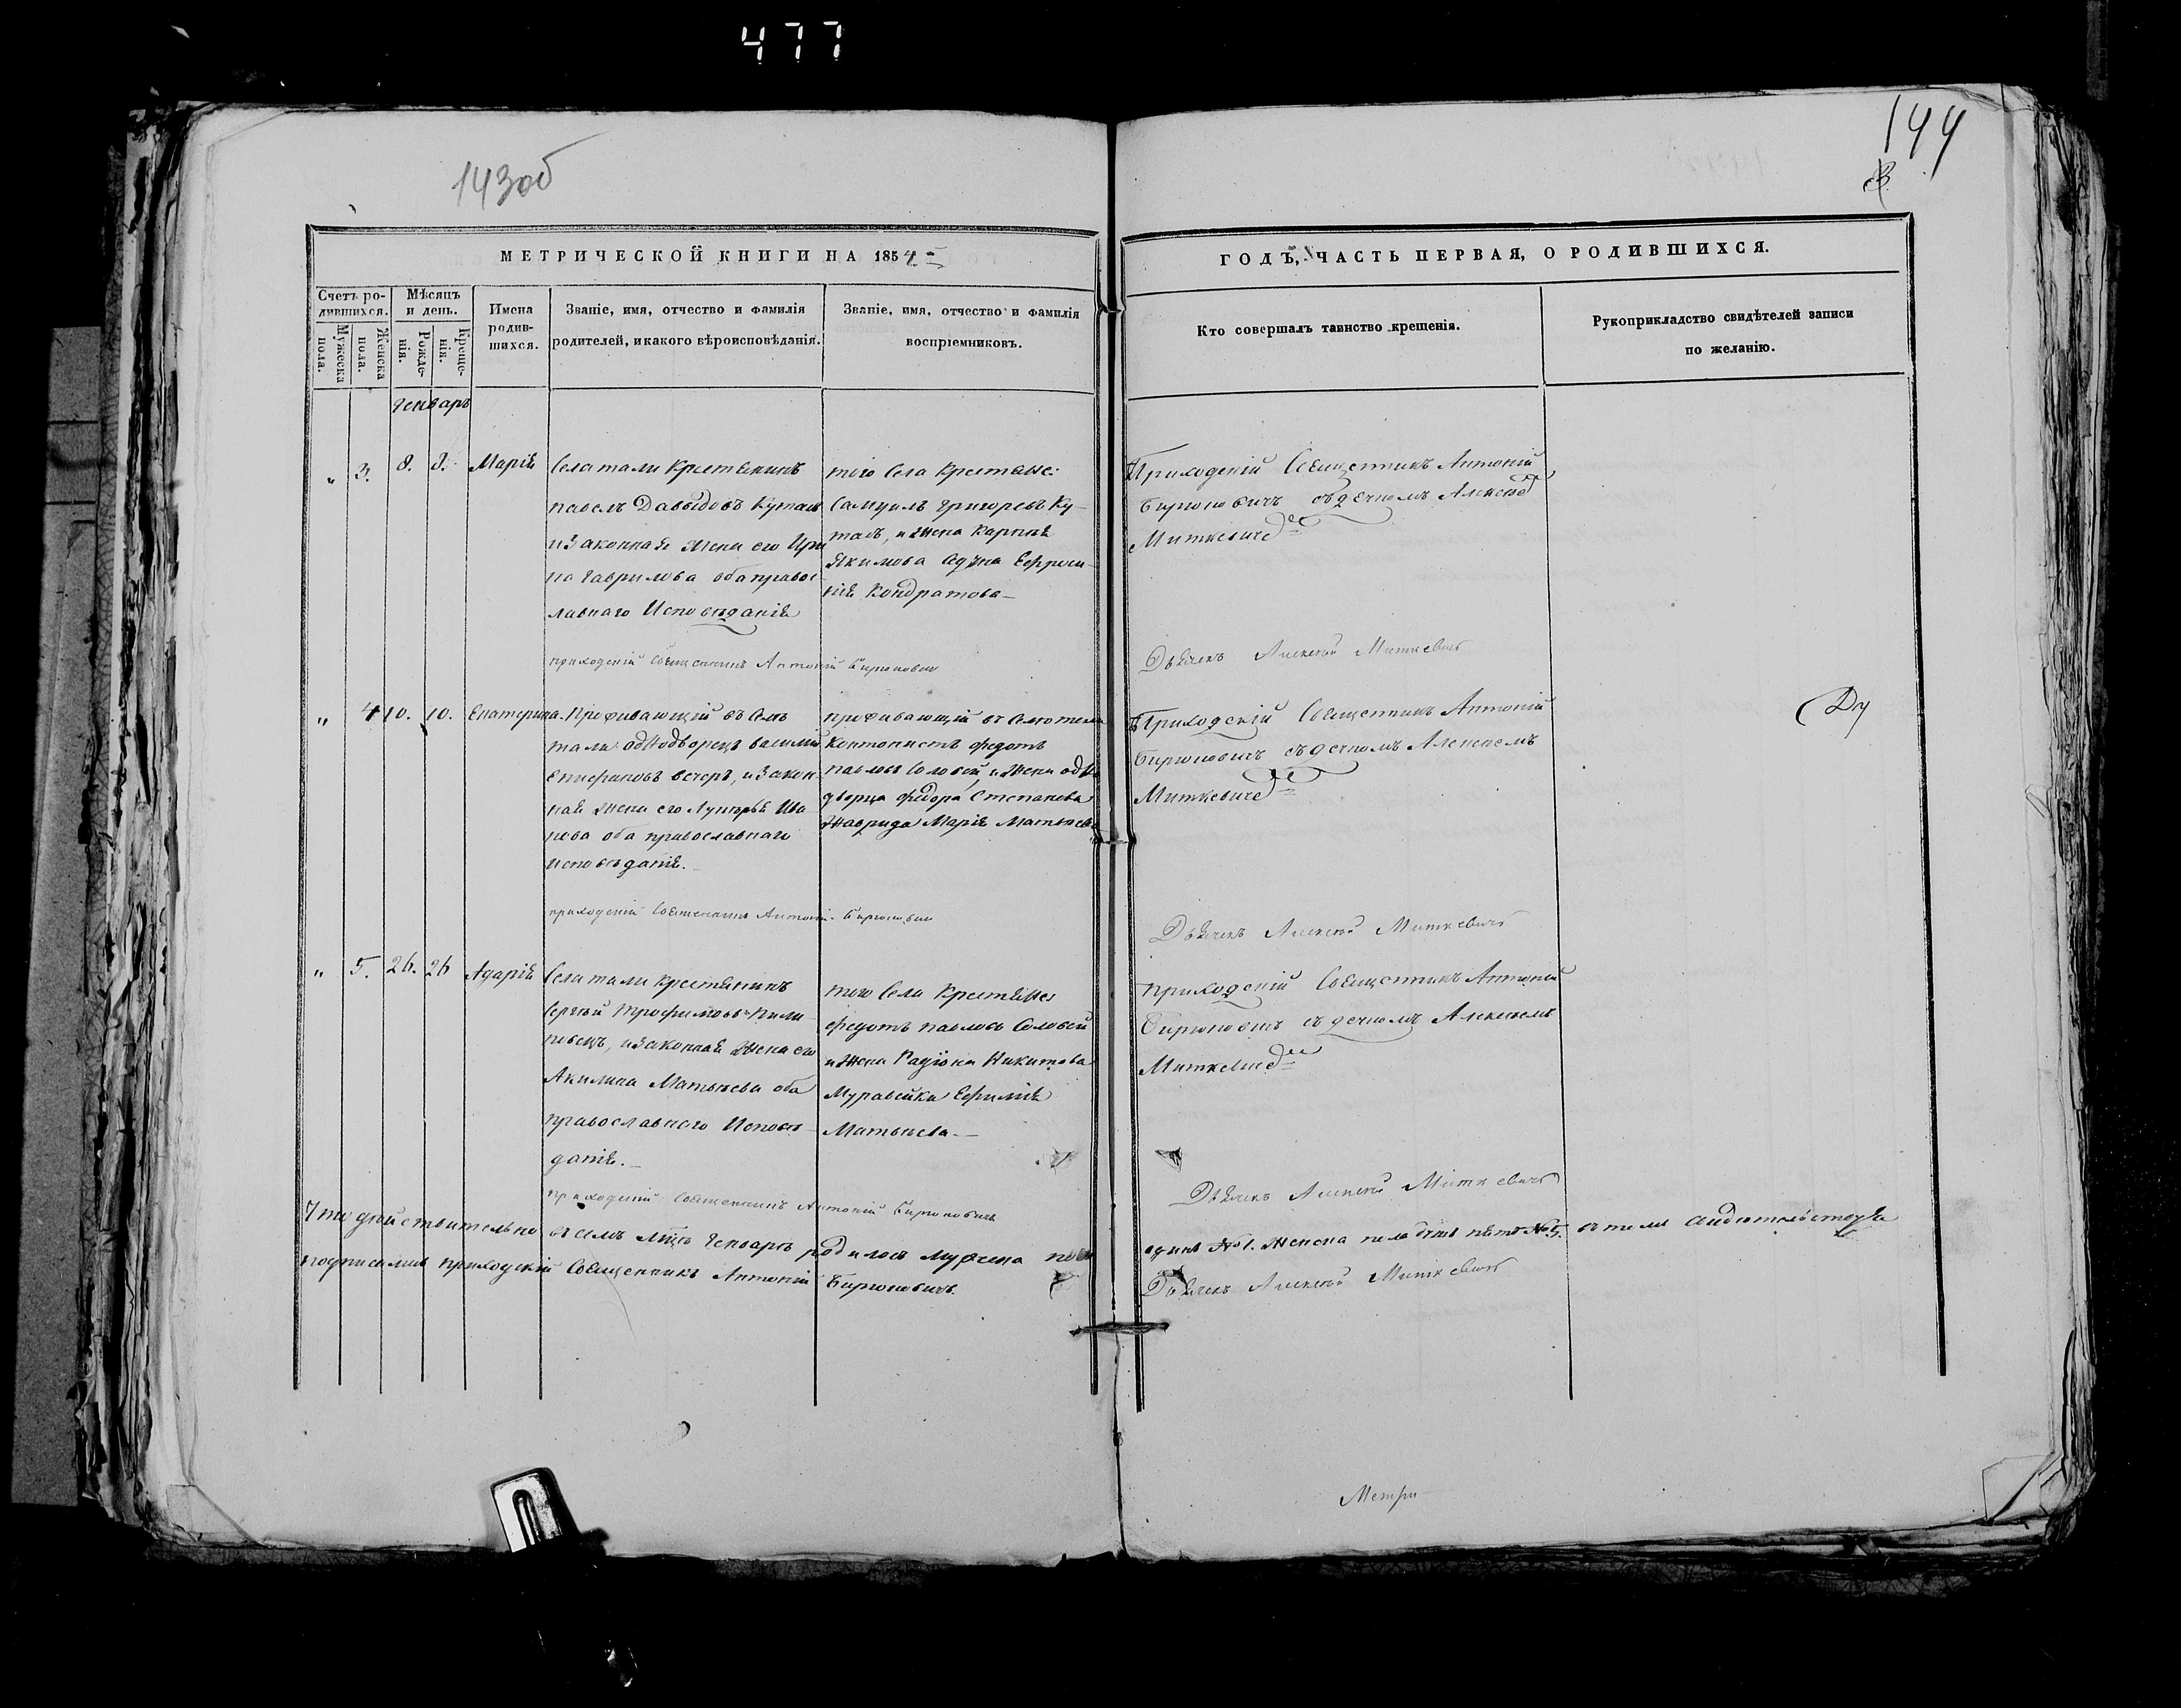 477
143об
144
МЕТРИЧЕСКОЙ КНИГИ НА 1854
ГОДЪ, ЧАСТЬ ПЕРВАЯ, О РОДИВШИХСЯ.
Счетъ ро-
дившихся.
Мужеска
пола.
Женска
пола.
Мѣсяцъ
и день.
Рожде-
нія.
Креще-
нія.
Имена
родив-
шихся.
Званіе, имя, отчество и фамилія
родителей, и какого вѣроисповѣданія.
Званіе, имя, отчество и фамилія
воспріемниковъ.
Кто совершалъ таинство крещенія.
Рукоприкладство свидѣтелей записи
по желанію.
Генварь
" 3. 8. 8. Марія
Села тали Крестянинъ
павелъ Давыдовъ
и Законная жена его Ири
на Гаврилова оба правос
лавнаго Исповѣданія
того Села Крестяне:
Самуилъ Григорьевъ Ку-
, и жена
Якимова Ефроси
нія Кондратова
Приходскій Священникъ Антоній
Бирюковичъ съ дечкомъ Алексѣе
Миткевиче
приходскій Священникъ Антоній Бирюкович
Дьячекъ Алексѣй Миткевичъ
" 4 10. 10. Екатерина
Проживающій въ Селѣ
тали однодворецъ василий
вечеръ, и Закон
ная жена его Ива
нова оба православнаго
исповѣданія.
проживающій въ Селѣ тали
федотъ
павловъ Соловей, и жена одно
дворца федора Степанова
Марія Матвѣева
Приходскій Священникъ Антоній
Бирюковичъ съ дечкомъ Алексѣемъ
Миткевиче
Ду
приходскій Священникъ Антоній Бирюкович
Дьячекъ Алексѣй Миткевичъ
" 5. 26. 26
Села тали крестянинъ
Сергѣй Трофимовъ Пили
пецъ, и законная жена его
Акилина Матвѣева оба
православнаго Исповѣ
данія.
того Села Крестяне
федотъ павловъ Соловей
и жена Радіона Никитова
Муравейка Ефимія
Матвѣева
приходскій Священникъ Антоній
Бирюковичъ съ дечкомъ Алексѣемъ
приходскій Священникъ Антоній Бирюковичъ
Дьячекъ Алексѣй Миткевичъ
Что дѣйствительно въ семъ мцѣ Генварѣ родилось мужеска пола
одинъ №1. женска пола пять №5. въ томъ
приходскій Священникъ Антоній Бирюковичъ
Дьячекъ Алексѣй Миткевичъ
Метри